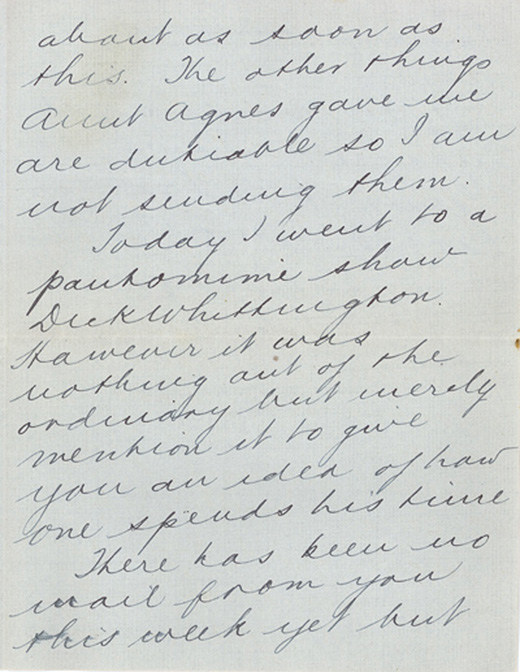 about as soon as
this. The other things
Aunt Agnes gave me
are dutiable so I am
not sending them.
Today I went to a
pantomime show
Dick Whittington.
However it was
nothing out of the
ordinary but merely
mention it to give
you an idea of how
one spends his time
There has been no
mail from you
this week yet but